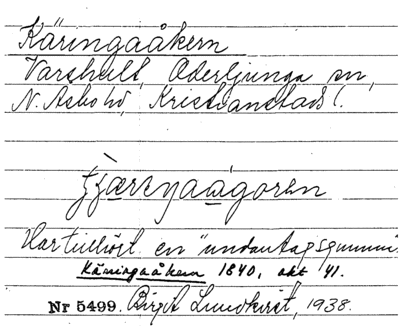 Käringaåkern
Varshult, Oderljunga sn,
N. Åsbo hd, Kristianstads l.
Har tillhört en "undantagsgumma".
Käringaåkern 1840, akt 41.
Nr 5499. Birgit Lundkvist, 1938.